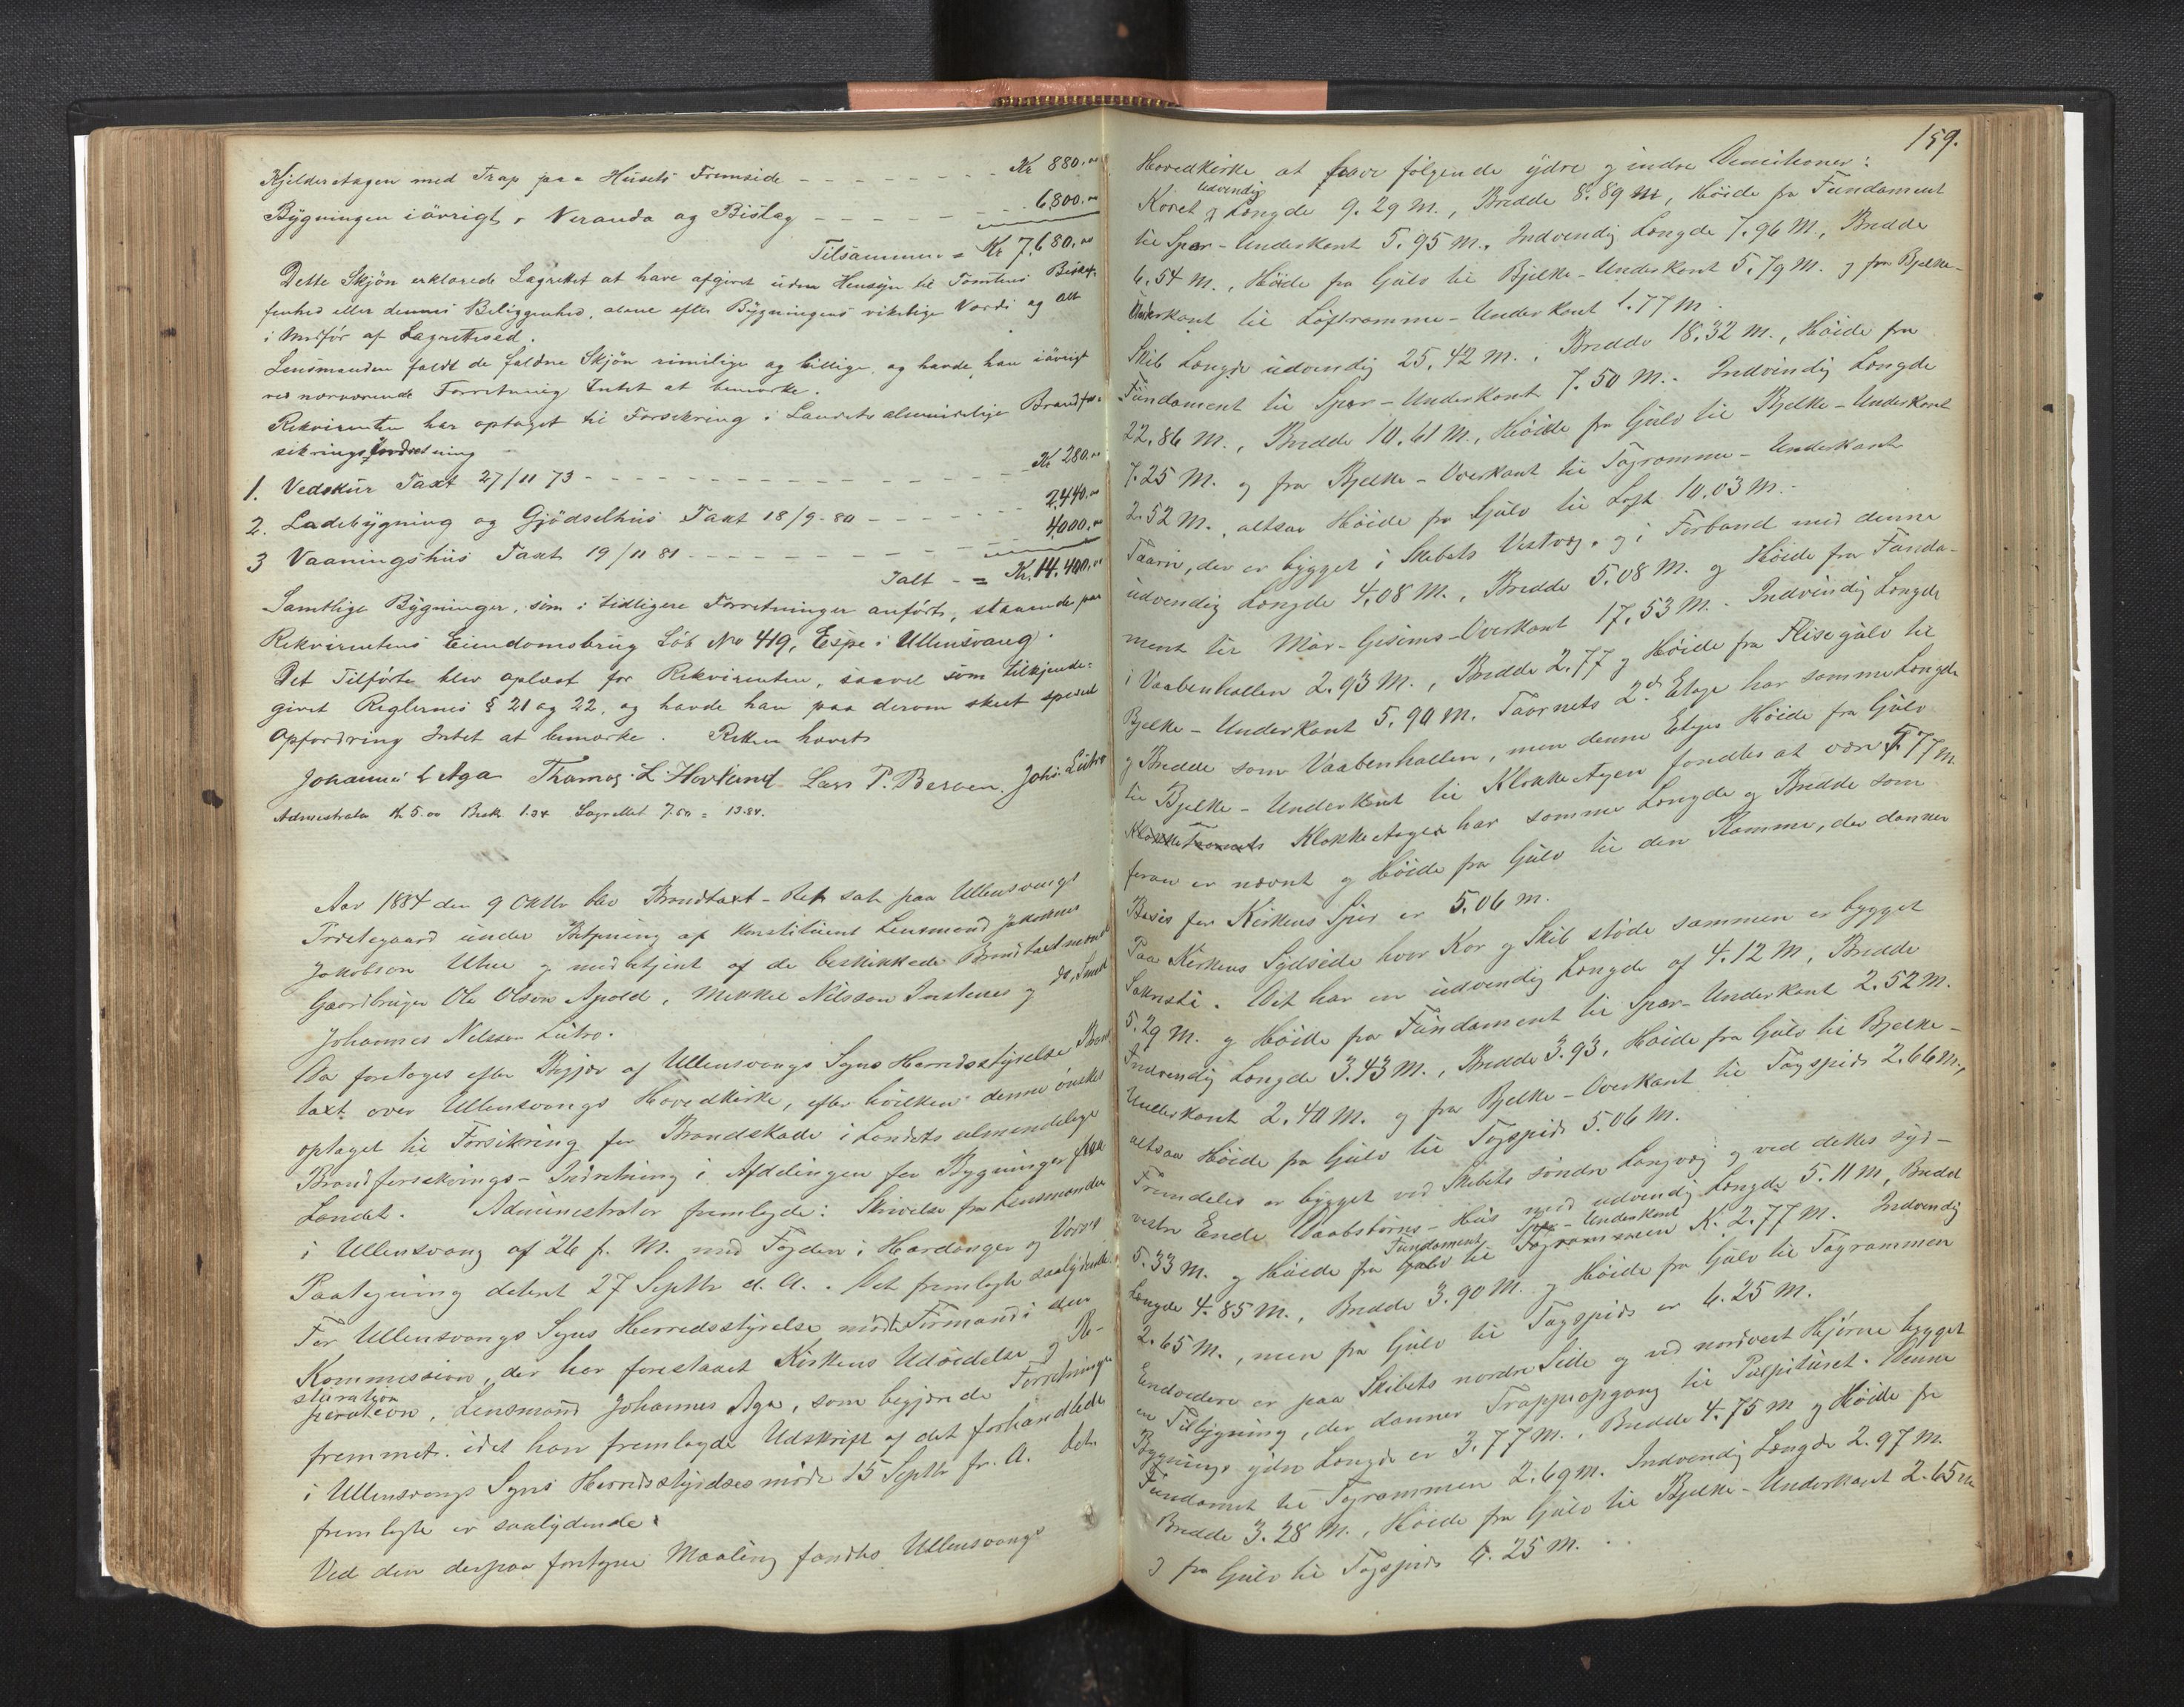 Kjelderetagen med Trap paa Husets Fremside - - - - - - - - Kr 880.00
Bygningen iøvrigt, Veranda og Bislag - - - - - - - 6800.00
Tilsammen = Kr 7,680.00
Dette Skjøn erklærede Lagrettet at have afgivet uden Hensyn til Tomtens Beskaf-
fenhed eller dennes Beliggenhed, alene efter Bygningens virkelige Værdi og alt
i Medfør af Lagretteed.
Lensmanden fandt de faldne Skjøn rimelige og billige, og havde han iøvrigt
ved nærværende Forretning Intet at bemærke.
Rekvirenten har optaget til Forsikring i Landets almindelige Brandfor-
sikringsindretning
1. Vedskur Taxt 27/11 73 - - - - - - - - - - - - - - Kr 280.00
2. Ladebygning og Gjødselhus Taxt 18/9-80 - - - - - - 2,440.00
3 Vaaningshus Taxt 19/11 81 - - - - - - - - - 4,000.00
Ialt - = Kr. 14,400.00
Samtlige Bygninger, som i tidligere Forretninger anført, staaende paa
Rekvirentens Eiendomsbrug Løb No 419, Espe i Ullensvang.
Det Tilførte blev oplæst for Rekvirenten, saavel som tilkjende-
givet Reglernes § 21 og 22, og havde han paa derom skeet speciel
Opfordring Intet at bemærke. Retten hævet
Johannes L Aga Thomas L. Hovland Lars P. Berven. Johs. Lutro
Administrator Kr 5.00 Besk. 1.34 Lagrettet 7.50 = 13.84.
Aar 1884 den 9 Oktbr blev Brandtaxt-Ret sat paa Ullensvangs
Præstegaard under Betjening af konstitueret Lensmand Jakobsens
Jakobson Utne og medbetjent af de beskikkede Brandtaxtmænd
Gaardbruger Ole Olsen Apold, Mikkel Nilsson Instenes og
Johannes Nilssen Lutro.
Da foretoges efter Begjær af Ullensvangs Sogns Herredsstyrelse Brand-
taxt over Ullensvangs Hovedkirke, efter hvilken denne ønskes
optaget til Forsikring for Brandskade i Landets almindelige
Brandforsikrings-Indretning i Afdelingen for Bygninger paa
Landet. Administrator fremlagde: Skrivelse fra Lensmanden
i Ullensvang af 26 f. M. med Fogden i Hardanger og Voss's
Paategning dateret 27 Septbr d. A. Det fremlagte saalydende
For Ullensvangs Sogns Herredsstyrelse mødte Formand i den
Kommission, der har forestaaet Kirkens Udvidelse og Re-
stauration
peration, Lensmand Johannes Aga, som begjærede Forretningen
fremmet. idet han fremlagde Udskrift af det forhandlede
i Ullensvangs Sogns Herredsstyrelsesmøde 15 Septbr fr. A. Det
fremlagte er saalydende:
Ved den derpaa foretagne Maaling fandtes Ullensvangs
159.
Hovedkirke at have følgende ydre og indre Dimensioner:
Koret udvendig Længde 9.29 M., Bredde 8.89 M, Høide fra Fundament
til Spær-Underkant 5.95 M. Indvendig Længde 7.96 M., Bredde
6.54 M., Høide fra Gulv til Bjelke-Underkant 5.79 M. og fra Bjelke-
Underkant til Loftramme-Underkant 1.77 M.
Skib Længde udvendig 25.42 M., Bredde 18.32 M., Høide fra
Fundament til Spær-Underkant 7.50 M. Indvendig Længde
22.86 M., Bredde 10.61 M., Høide fra Gulv til Bjelke-Underkant
7.25 M. og fra Bjelke-Overkant til Tagramme-Underkant
2.52 M. altsaa Høide fra Gulv til Loft 10.03 M.
Taarn, der er bygget i Skibets Vestvæg, og i Forband med denne
udvendig Længde 4.08 M., Bredde 5.08 M. og Høide fra Funda-
ment til Mur-Gesims-Overkant 17.53 M. Indvendig Længde
i Vaabenhallen 2.93 M., Bredde 2.77 og Høide fra Flisegulv til
Bjelke-Underkant 5.90 M. Taarnets 2d Etage har samme Længde
og Bredde som Vaabenhallen, men denne Etages Høide fra Gulv
til Bjelke-Underkant til Klokkeetagen fandtes at være 5.77 M.
Klokketaarnets Klokkeetagen har samme Længde og Bredde som
foran er nævnt og Høide fra Gulv til den Ramme, der danner
Basis for Kirkens Spir er 5.06 M.
Paa Kirkens Sydside hvor Kor og Skib støde sammen er bygget
Sakristi. Det har en udvendig Længde af 4.12 M, Bredde
5.29 M. og Høide fra Fundament til Spær-Underkant 2.52 M.
Indvendig Længde 3.43 M., Bredde 3.93, Høide fra Gulv til Bjelke-
Underkant 2.40 M. og fra Bjelke-Overkant til Tagspids 2.66 M.,
altsaa Høide fra Gulv til Tagspids 5.06 M.
Fremdeles er bygget ved Skibets søndre Langvæg og ved dettes syd-
vestre Ende Daabsbørns-Hus med udvendig Længde 5.11 M, Bredde
5.33 M. og Høide fra Gulv Fundament til Tagrammen Spær-Underkant K. 2.77 M. Indvendig
Længde 4.85 M., Bredde 3.90 M. og Høide fra Gulv til Tagrammen
2.65 M., men fra Gulv til Tagspids er 4.25 M.
Endvidere er paa Skibets nordre Side og ved nordvest Hjørne bygget
en Tilbygning, der danner Trappeopgang til Pulpituret. Denne
Bygnings ydre Længde er 3.77 M., Bredde 4.75 M og Høide fra
Fundament til Tagrammen 2.69 M. Indvendig Længde 2.97 M.
Bredde 3.28 M., Høide fra Gulv til Bjelke-Underkant 2.65 M
og fra Gulv til Tagspids 4.25 M.